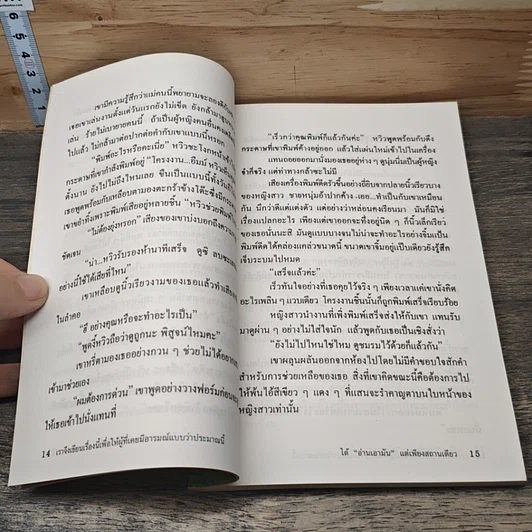 เขามีความรู้สึกว่าแม่คนนี้พยายามจะลองดีกับ
เธอเขาเล่นงานตั้งแต่วันแรกยังไม่เข็ด ยังกล้ามา
เล่น ร้ายไม่เบายายคนนี้ ถ้าเป็นผู้หญิงคนอื่นคง
ไปแล้ว ไม่กล้ามาต่อปากต่อคำกับเขาแบบนี้หรอก
"พิมพ์อะไรหรือคะเนี่ย" หวิวชะโงกหน้าเข้า
กระดาษที่เขากำลังพิมพ์อยู่ "โครงงาน...อืมม์ หวิว
ตั้งนาน ยังไปไม่ถึงไหนเลย ขืนเป็นแบบนี้ทั้งวันก็
เธอพูดพร้อมกับเหลือบตามองตะกร้าข้างโต๊ะซึ่งมีกระดาษ
เขาขยำทิ้งเพราะพิมพ์เสียอยู่หลายชิ้น "หวิว
"ไม่ต้องยุ่งหรอก" เสียงของเขาบ่งบอกถึงความ
ชัดเจน
"น่า...หวิวรับรองห้านาทีเสร็จ ดูซิ ลบซะ
อย่างนี้ใช้ได้เสียที่ไหน"
เขาเหลือบดูนิ้วเรียวงามของเธอแล้วทำเสียง
ในลำคอ
"ฮึ อย่างคุณหรือจะทำอะไรเป็น"
"พูดงี้หวิวถือว่าดูถูกนะ พิสูจน์ไหมคะ"
เขาหรี่ตามองเธออย่างกวน ๆ ช่วยไม่ได้อยาก
เข้ามาช่วยเอง
"ผมต้องการด่วน" เขาพูดอย่างวางฟอร์มก่อน
ให้เธอเข้าไปนั่งแทนที่
14 เราจึงเขียนเรื่องนี้เพื่อให้ผู้ที่เคยมีอารมณ์แบบว่าประมาณนี้
"เร็วกว่าคุณพิมพ์ก็แล้วกันค่ะ" หวิวพูดพร้อมกับดึง
กระดาษที่เขาพิมพ์ค้างอยู่ออก แล้วใส่แผ่นใหม่เข้าไปในเครื่อง
แทนถอยออกมานั่งมองเธออยู่ห่าง ๆ ดูนุ่มนิ่มเป็นผู้หญิง
จ๋าก็จริง แต่ท่าทางกล้าซะไม่มี
เสียงเครื่องพิมพ์ดีดรัวขึ้นอย่างถี่ยิบจากปลายนิ้วเรียวบาง
ของหญิงสาว ชายหนุ่มอ้าปากค้าง...เออ...ทำเป็นกับเขาเหมือน
กัน นึกว่าดีแต่แต่งตัว แต่ดูอย่างว่าหล่อนคงเรียนมา มันก็มิใช่
เรื่องแปลกอะไร เพียงแต่เขาออกจะทึ่งอยู่นิด ๆ ก็นิ้วเล็กเรียว
ของเธอนั่นนะสิ มันดูแบบบางจนไม่น่าจะทำอะไรเป็น อย่าว่าแต่จะ
พิมพ์ดีดได้คล่องแคล่วขนาดนี้ ขนาดเขาจิ้มอยู่เป็นเดียวยังรู้สึก
เจ็บระบมไปหมด
"เสร็จแล้วค่ะ"
เร็วทันใจอย่างที่เธอคุยไว้จริง ๆ เพียงเวลาแค่เขานั่งคิด
อะไรเพลิน ๆ แวบเดียว โครงงานชิ้นนั้นก็ถูกพิมพ์เสร็จเรียบร้อย
หญิงสาวนำงานที่เพิ่งพิมพ์เสร็จส่งให้กับเขา แทนรับ
มาดูผ่าน ๆ อย่างไม่ใส่ใจนัก แล้วพูดกับเธอเป็นเชิงสั่งว่า
"ยังไม่ไปไหนใช่ไหม ดูชมรมไว้ด้วยก็แล้วกัน"
เขาผลุนผลันออกจากห้องไปโดยไม่มีคำขอบใจสักคำ
สำหรับการช่วยเหลือของเธอ สิ่งที่เขาคิดขณะนี้คือต้องการไป
ให้พ้นไอ้สีเขียว ๆ แดง ๆ ที่แสนจะรำคาญตาบนใบหน้าของ
หญิงสาวเท่านั้น
ได้ "อ่านเอามัน" แต่เพียงสถานเดียว 15
6
5
4
3
2
1